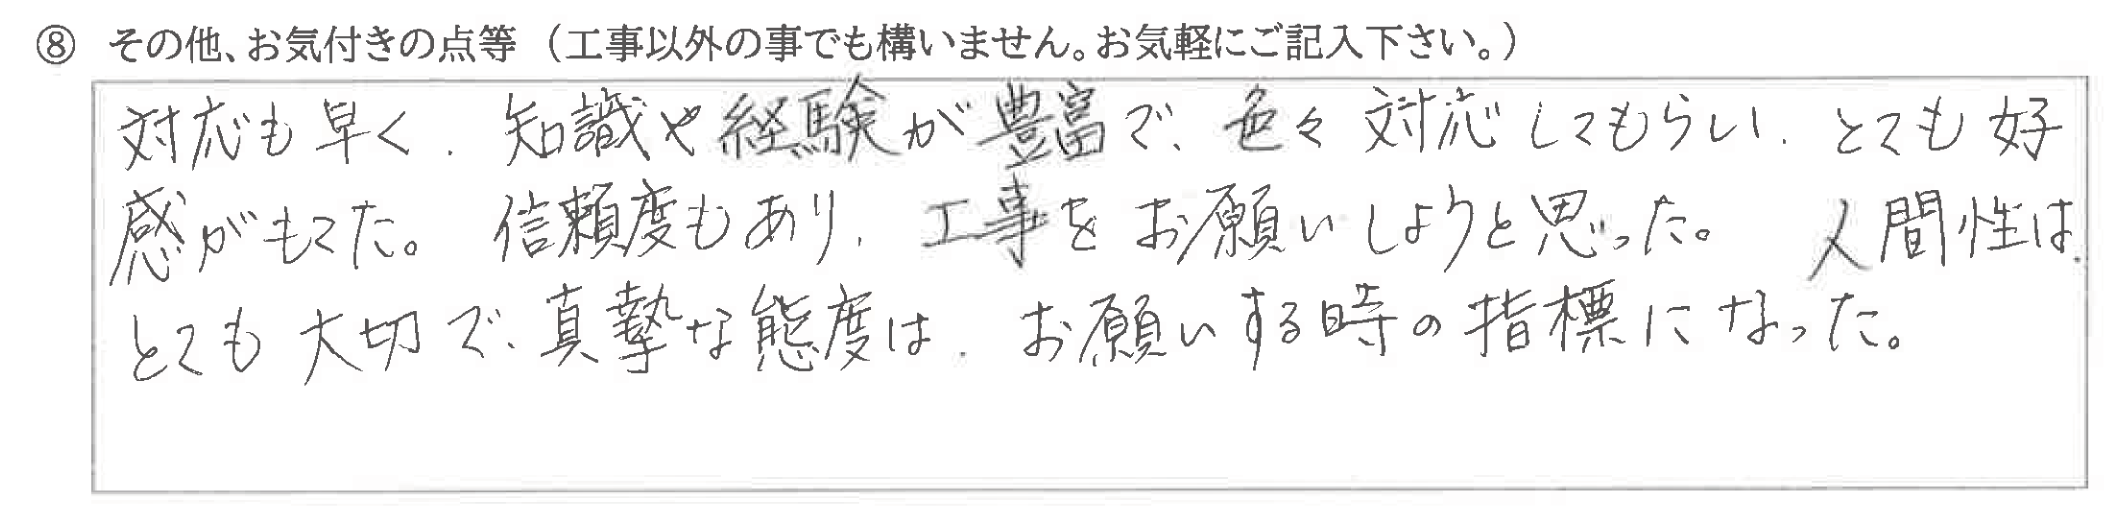 ⑧ その他、お気付きの点等（工事以外の事でも構いません。お気軽にご記入下さい。）
対応も早く、知識や経験が豊富で、色々対応してもらい、とても好
感がもてた。信頼度もあり、工事をお願いしようと思った。人間性は、
とても大切で、真摯な態度は、お願いする時の指標になった。